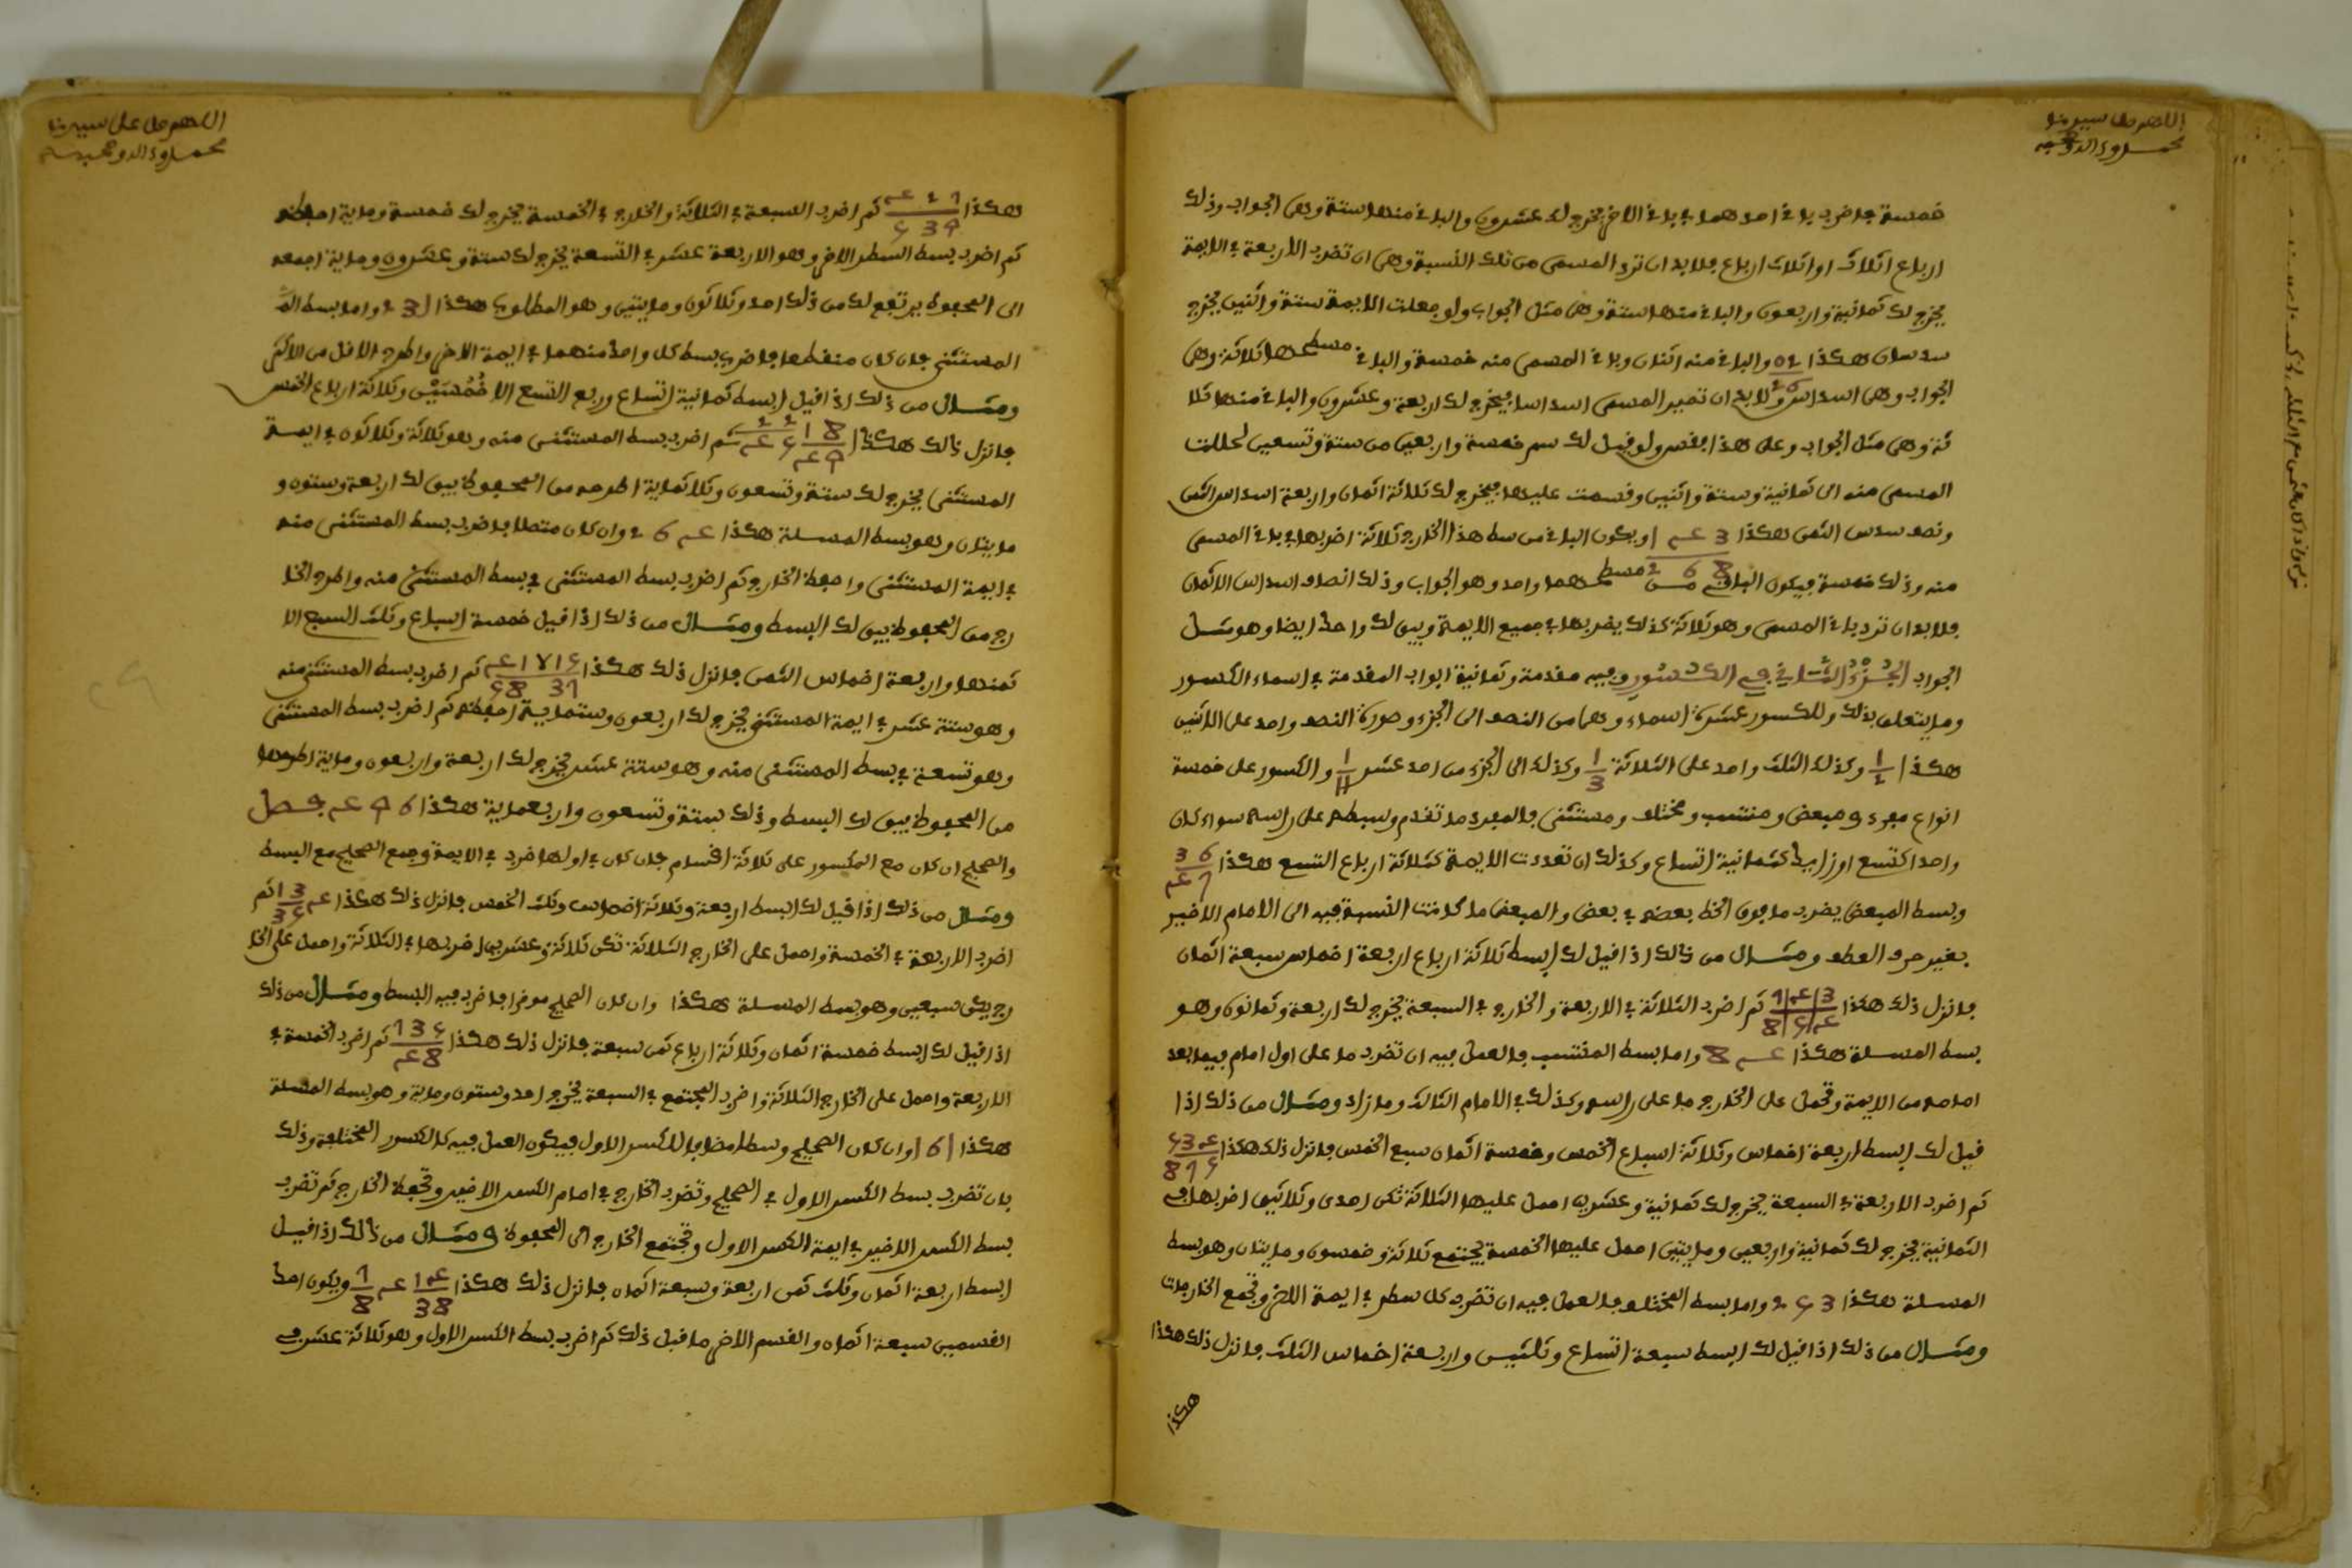 اللهم صل على سيدنا
محمد وءاله وصحبه
خمسة فاضرب باقي احدهما في باقي الاخر يخرج لك عشرون والباقي منها ستة وهي الجواب وذلك
ارباع اثلاث او اثلاث ارباع فلابد ان ترد المسمى من تلك النسبة وهي ان تضرب الاربعة في الايمة
يخرج لك ثمانية واربعون والباقي منها ستة وهي مثل الجواب ولو جعلت الايمة ستة واثنين يخرج
سدسان هكذا والباقي منه اثنان وباقي المسمى منه خمسة والباقي من بسطها ثلاثة وهي
الجواب وهي اسداس ولابد ان تصير المسمى اسداسا فيخرج لك اربعة وعشرون والباقي منها ثلا
ثة وهي مثل الجواب وعلى هذا فقس ولو قيل لك سم خمسة واربعين من ستة وتسعين لحللت
المسمى منه الى ثمانية وستة واثنين وقسمت عليها فيخرج لك ثلاثة اثمان واربعة اسداس الثمن
ونصف سدس الثمن هكذا ويكون الباقي من بسط هذا الخارج ثلاثة اضربها في باقي المسمى
منه وذلك خمسة فيكون الباقي من مسطحهما واحد وهو الجواب وذلك انصاف اسداس الاثمان
فلابد ان ترد باقي المسمى وهو ثلاثة كذلك بضربها في جميع الايمة ويبقى لك واحد ايضا وهو مثل
الجواب الجزء الثاني في الكسور وفيه مقدمة وثمانية ابواب المقدمة في اسماء الكسور
وما يتعلق بذلك وللكسور عشرة اسماء وهما من النصف الى الجزء وصورة النصف واحد على اثنين
هكذا وكذلك الثلث واحد على الثلاثة 1/3 وكذلك الى الجزء من احد عشر 1/11 والكسور على خمسة
انواع مفرد ومبعض ومنتسب ومختلف ومستثنى فالمفرد ما تقدم وبسطه على راسه سواء كان
واحدا كتسع او زايدا كثمانية اتساع وكذلك ان تعددت الايمة كثلاثة ارباع التسع هكذا
وبسط المبعض يضرب ما فوق الخط بعضه في بعض والمبعض ما كانت النسبة فيه الى الامام الاخير
بغير حرف العطف ومثال من ذلك اذا قيل لك ابسط ثلاثة ارباع اربعة اخماس سبعة اثمان
فانزل ذلك هكذا ثم اضرب الثلاثة في الاربعة والخارج في السبعة يخرج لك اربعة وثمانون وهو
بسط المسلة هكذا واما بسط المنتسب فالعمل فيه ان تضرب ما على اول امام فيما بعد
امامه من الايمة وتحمل على الخارج ما على راسه وكذلك في الامام الثالث وما زاد ومثال من ذلك اذا
قيل لك ابسط اربعة اخماس وثلاثة اسباع الخمس وخمسة اثمان سبع الخمس فانزل ذلك هكذا
ثم اضرب الاربعة في السبعة يخرج لك ثمانية وعشرين احمل عليها الثلاثة تكن احدى وثلاثين اضربها في
الثمانية يخرج لك ثمانية واربعين ومايتين احمل عليها الخمسة يجتمع ثلاثة وخمسون ومايتان وهو بسط
المسلة هكذا واما بسط المختلف فالعمل فيه ان تضرب كل سطر في ايمة الاخر وتجمع الخارجات
ومثال من ذلك اذا قيل لك ابسط سبعة اتساع وثلثين واربعة اخماس الثلث فانزل ذلك هكذا
هكذا
اللهم صل على سيدنا
محمد وءاله وصحبه
هكذا ثم اضرب السبعة في الثلاثة والخارج في الخمسة يخرج لك خمسة وماية احفظه
ثم اضرب بسط السطر الاخر وهو الاربعة عشر في التسعة يخرج لك ستة وعشرون وماية اجمعه
الى المحفوظ يرتفع لك من ذلك احد وثلاثون ومايتين وهو المطلوب هكذا واما بسط
المستثنى فان كان منقطعا فاضرب بسط كل واحد منهما في ايمة الاخر واطرح الاقل من الاكثر
ومثال من ذلك اذا قيل ابسط ثمانية اتساع وربع التسع الا خمسين وثلاثة ارباع الخمس
فانزل ذلك هكذا ثم اضرب بسط المستثنى منه وهو ثلاثة وثلاثون في ايمة
المستثنى يخرج لك ستة وتسعون وثلاثماية اطرحه من المحفوظ يبقى لك اربعة وستون و
مايتان وهو بسط المسلة هكذا وان كان متصلا فاضرب بسط المستثنى منه
في ايمة المستثنى واحفظ الخارج ثم اضرب بسط المستثنى في بسط المستثنى منه واطرح الخا
رج من المحفوظ يبقى لك البسط ومثال من ذلك اذا قيل خمسة اسباع وثلث السبع الا
ثمنها واربعة اخماس الثمن فانزل ذلك هكذا ثم اضرب بسط المستثنى منه
وهو ستة عشر في ايمة المستثنى يخرج لك اربعون وستماية احفظه ثم اضرب بسط المستثنى
وهو تسعة في بسط المستثنى منه وهو ستة عشر يخرج لك اربعة واربعون وماية اطرحها
من المحفوظ يبقى لك البسط وذلك ستة وتسعون واربعماية هكذا فصل
والصحيح ان كان مع المكسور على ثلاثة اقسام فان كان في اولها اضرب في الايمة وجمع الصحيح مع البسط
ومثال من ذلك اذا قيل لك ابسط اربعة وثلاثة اخماس وثلث الخمس فانزل ذلك هكذا ثم
اضرب الاربعة في الخمسة واحمل على الخارج الثلاثة تكن ثلاثة وعشرين اضربها في الثلاثة واحمل على الخا
رج يكن سبعين وهو بسط المسلة هكذا وان كان الصحيح موخرا فاضرب فيه البسط ومثال من ذلك
اذا قيل لك ابسط خمسة اثمان وثلاثة ارباع ثمن سبعة فانزل ذلك هكذا ثم اضرب الخمسة في
الاربعة واحمل على الخارج الثلاثة واضرب المجتمع في السبعة يخرج احد وستون وماية وهو بسط المسلة
هكذا وان كان الصحيح وسطا مضافا للكسر الاول فيكون العمل فيه كالكسور المختلفة وذلك
بان تضرب بسط الكسر الاول في الصحيح وتضرب الخارج في امام الكسر الاخير وتحفظ الخارج ثم تضرب
بسط الكسر الاخير في ايمة الكسر الاول وتجتمع الخارج الى المحفوظ ومثال من ذلك اذا قيل
ابسط اربعة اثمان وثلث ثمن اربعة وسبعة اثمان فانزل ذلك هكذا ويكون احد
القسمين سبعة اثمان والقسم الاخر ما قبل ذلك ثم اضرب بسط الكسر الاول وهو ثلاثة عشر في